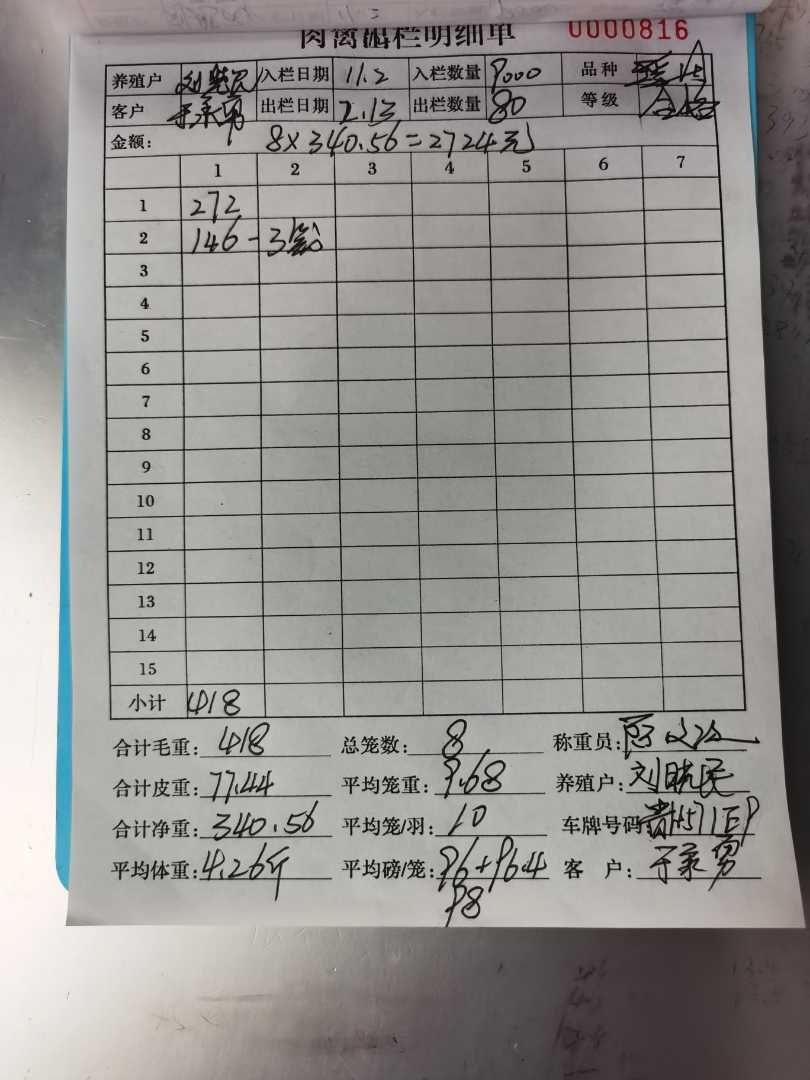 肉禽出栏明细单 0000816
养殖户 刘晓民 入栏日期 11.2 入栏数量 9000 品种
客户 于录勇 出栏日期 2.13 出栏数量 80 等级 合格
金额: 8×340.56=2724元
1 2 3 4 5 6 7
1 272
2 146-3笼
3
4
5
6
7
8
9
10
11
12
13
14
15
小计 418
合计毛重: 418 总笼数: 8 称重员:
合计皮重: 77.44 平均笼重: 9.68 养殖户: 刘晓民
合计净重: 340.56 平均笼/羽: 10 车牌号码
平均体重: 4.26斤 平均磅/笼: 96+96.4 客 户: 于录勇
98